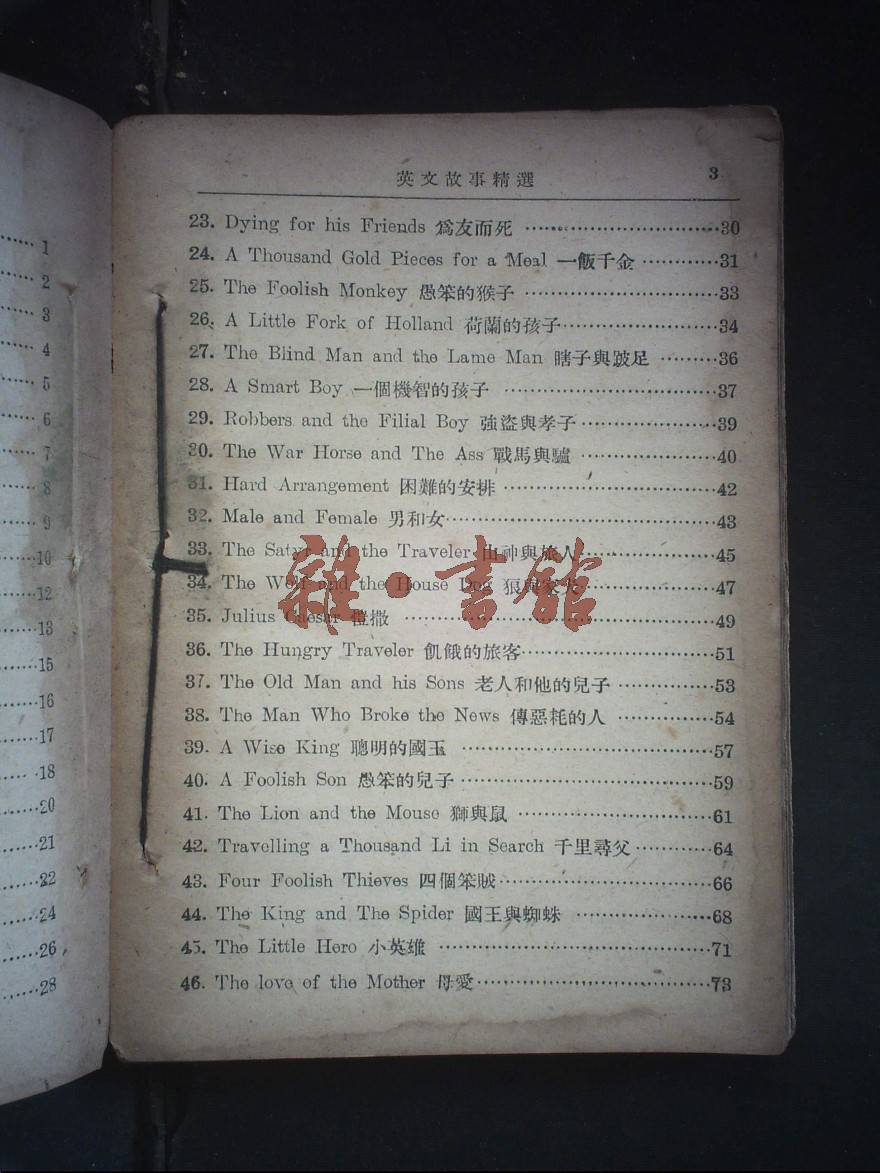 1
2
3
4
5
6
7
8
9
10
12
13
15
16
17
18
20
21
22
24
26
28
英文故事精選 3
23. Dying for his Friends 爲友而死 30
24. A Thousand Gold Pieces for a Meal 一飯千金 31
25. The Foolish Monkey 愚笨的猴子 33
26. A Little Fork of Holland 荷蘭的孩子 34
27. The Blind Man and the Lame Man 瞎子與跛足 36
28. A Smart Boy 一個機智的孩子 37
29. Robbers and the Filial Boy 強盜與孝子 39
30. The War Horse and The Ass 戰馬與驢 40
31. Hard Arrangement 困難的安排 42
32. Male and Female 男和女 43
33. The Satyr and the Traveler 山神與旅人 45
34. The Wolf and the House Dog 狼與家犬 47
35. Julius Caesar 愷撒 49
36. The Hungry Traveler 飢餓的旅客 51
37. The Old Man and his Sons 老人和他的兒子 53
38. The Man Who Broke the News 傳惡耗的人 54
39. A Wise King 聰明的國玉 57
40. A Foolish Son 愚笨的兒子 59
41. The Lion and the Mouse 獅與鼠 61
42. Travelling a Thousand Li in Search 千里尋父 64
43. Four Foolish Thieves 四個笨賊 66
44. The King and The Spider 國王與蜘蛛 68
45. The Little Hero 小英雄 71
46. The love of the Mother 母愛 73
雜·書館